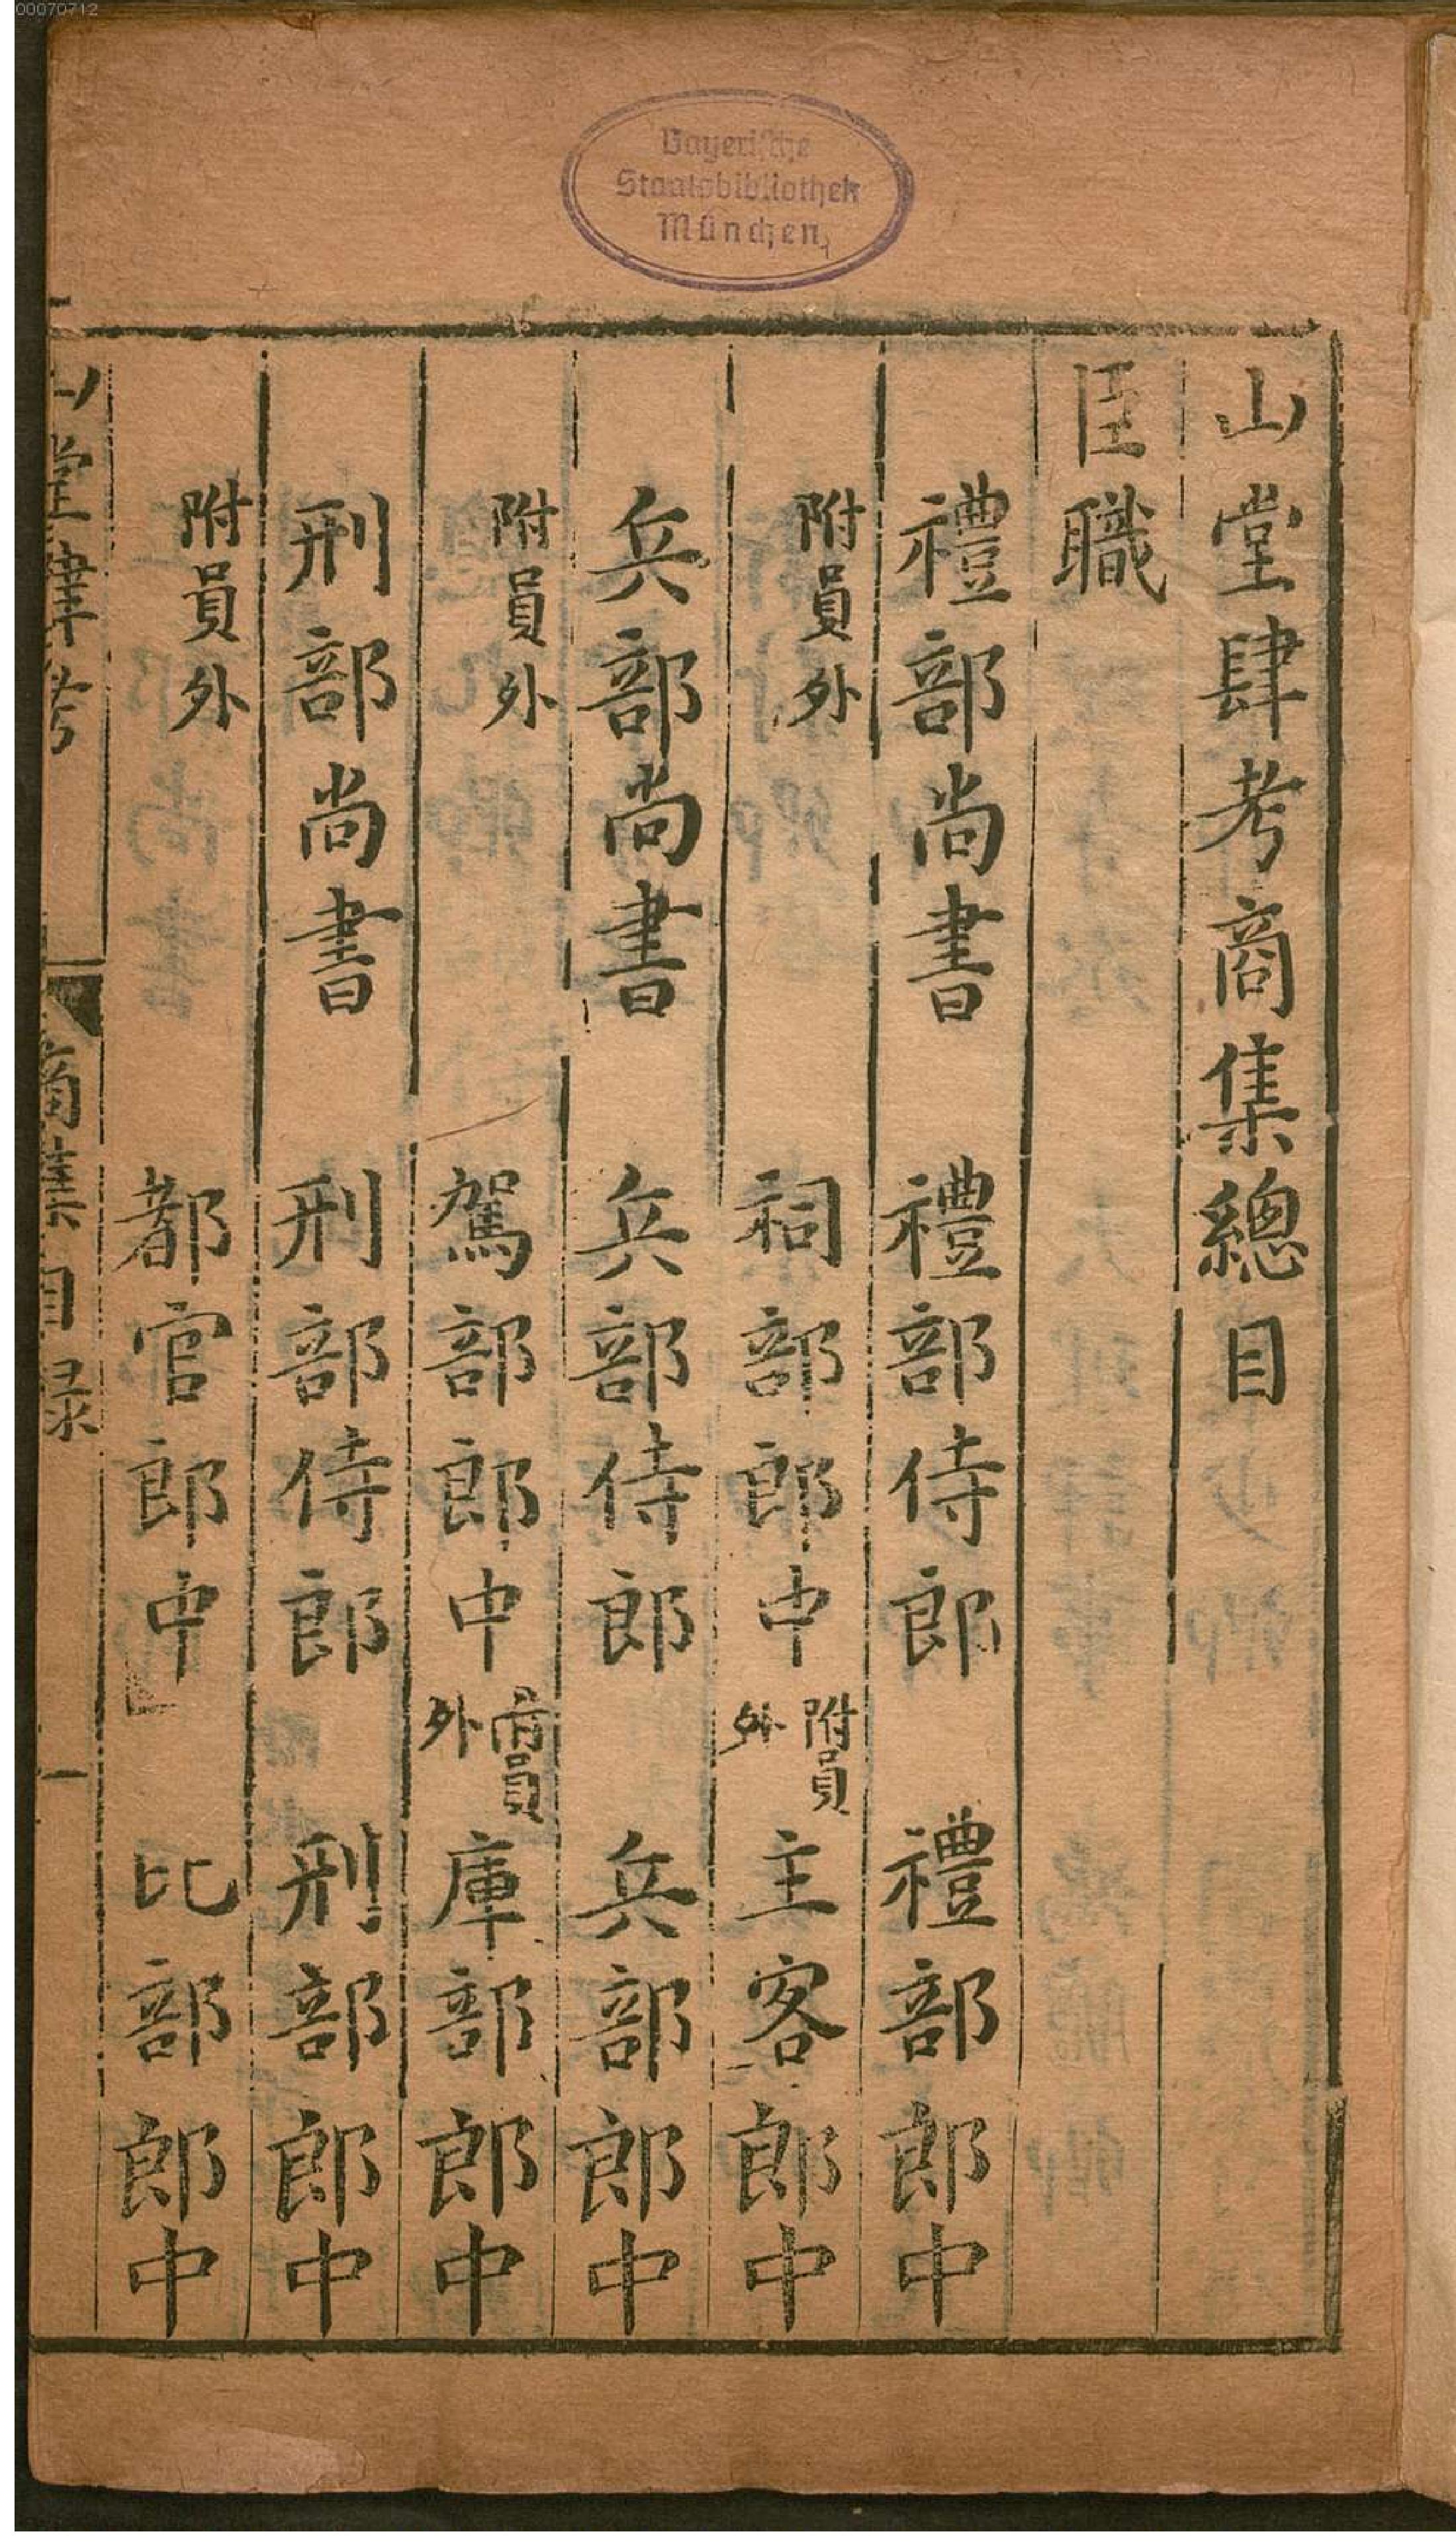 00070712
Bayerische
Staatsbibliothek
München
山堂肆考商集總目
臣職
禮部尚書 禮部侍郎 禮部郎中
附員外 祠部郎中 附員外 主客郎中
兵部尚書 兵部侍郎 兵部郎中
附員外 駕部郎中 附員外 庫部郎中
刑部尚書 刑部侍郎 刑部郎中
附員外 都官郎中 比部郎中
山堂肆考 商集目録 一